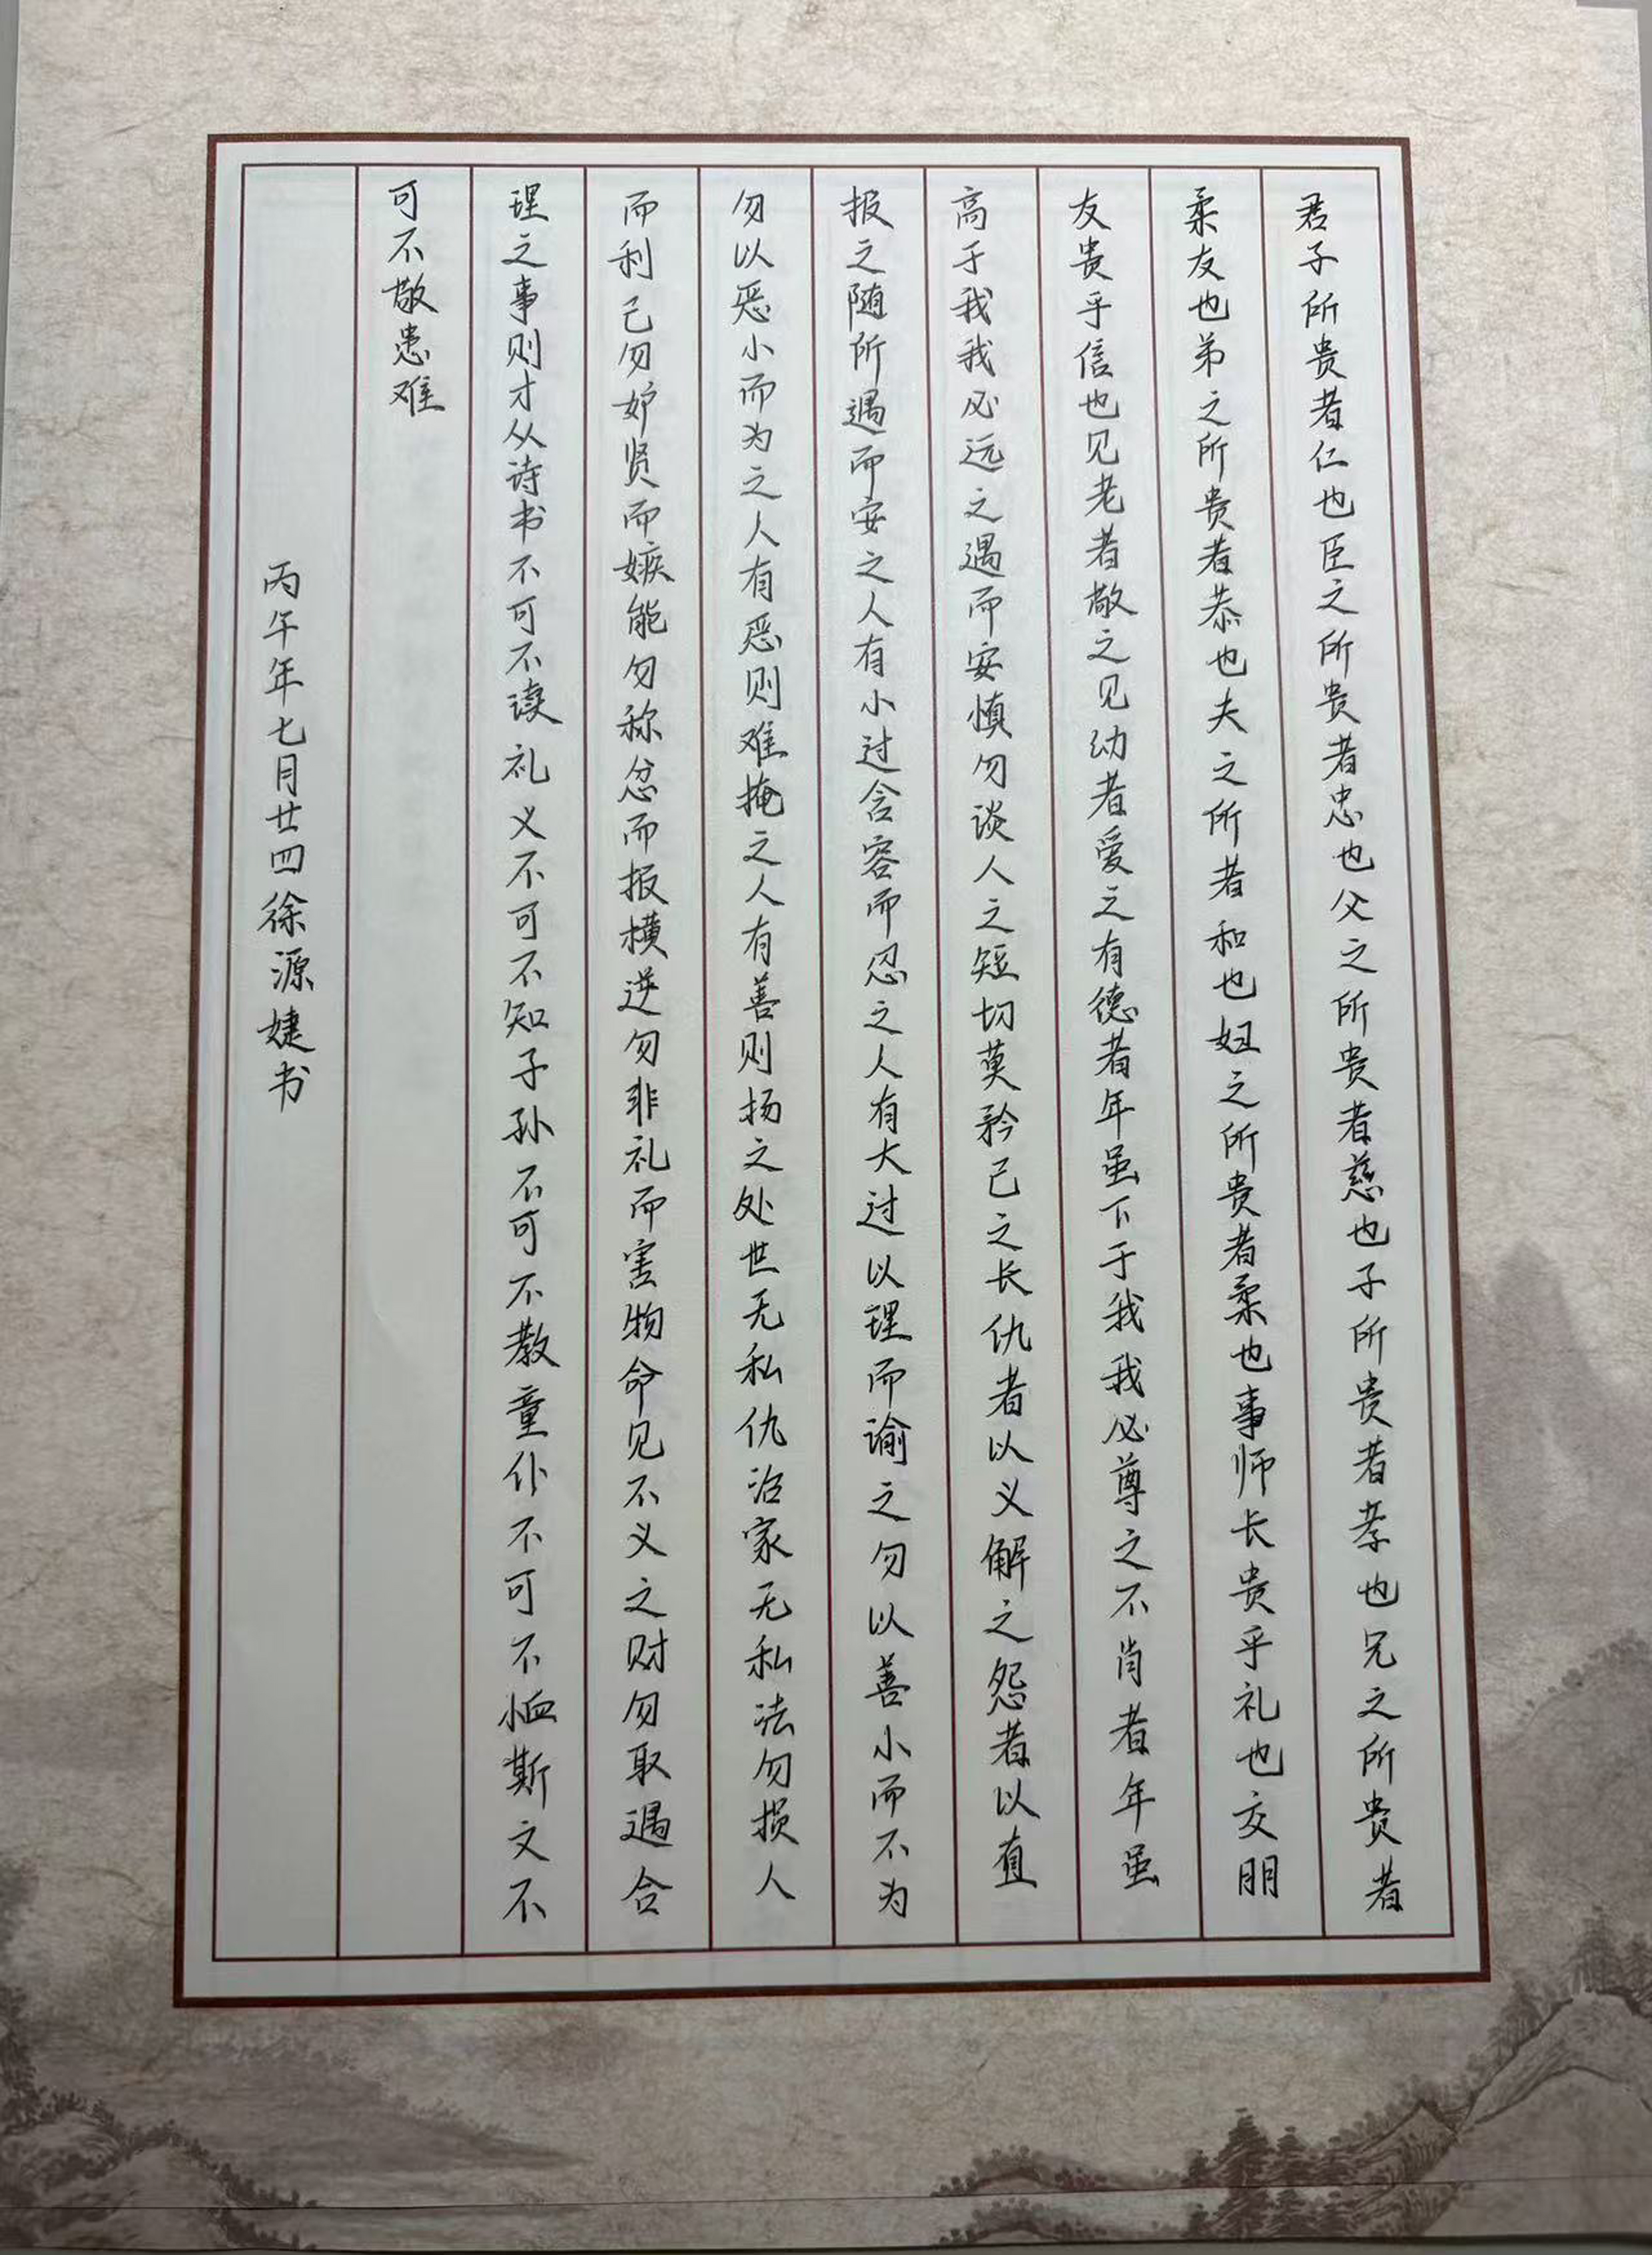 君子所贵者仁也臣之所贵者忠也父之所贵者慈也子所贵者孝也兄之所贵者
柔友也弟之所贵者恭也夫之所者和也妇之所贵者柔也事师长贵乎礼也交朋
友贵乎信也见老者敬之见幼者爱之有德者年虽下于我我必尊之不肖者年虽
高于我我必远之遇而安慎勿谈人之短切莫矜己之长仇者以义解之怨者以直
报之随所遇而安之人有小过含容而忍之人有大过以理而谕之勿以善小而不为
勿以恶小而为之人有恶则难掩之人有善则扬之处世无私仇治家无私法勿损人
而利己勿妒贤而嫉能勿称忿而报横逆勿非礼而害物命见不义之财勿取遇合
理之事则才从诗书不可不读礼义不可不知子孙不可不教童仆不可不恤斯文不
可不敬患难
丙午年七月廿四徐源婕书